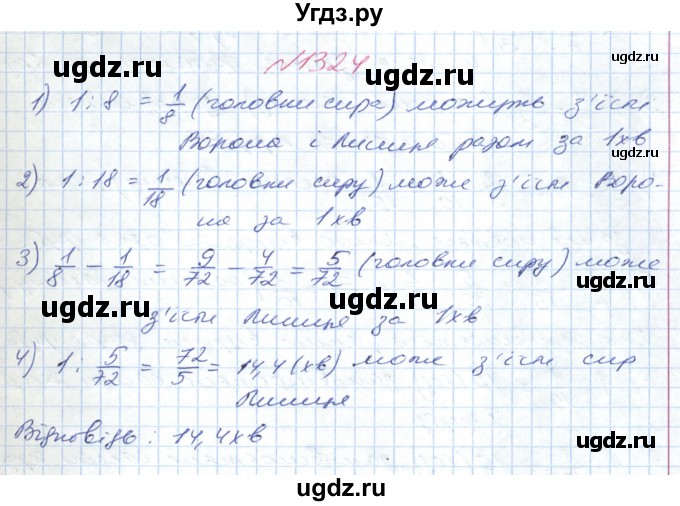 Угдз.ру
ugdz.ru ugdz.ru
№1324
1) 1 : 8 = 1/8 (головки сира) можуть з'їсти
Ворона і Лисиця разом за 1хв
ugdz.ru ugdz.ru
2) 1 : 18 = 1/18 (головки сиру) може з'їсти Воро-
на за 1хв
ugdz.ru ugdz.ru
3) 1/8 - 1/18 = 9/72 - 4/72 = 5/72 (головки сиру) може
з'їсти Лисиця за 1хв
ugdz.ru ugdz.ru
4) 1 : 5/72 = 72/5 = 14,4 (хв) може з'їсти сир
Лисиця
Відповідь : 14,4хв
ugdz.ru ugdz.ru
ugdz.ru